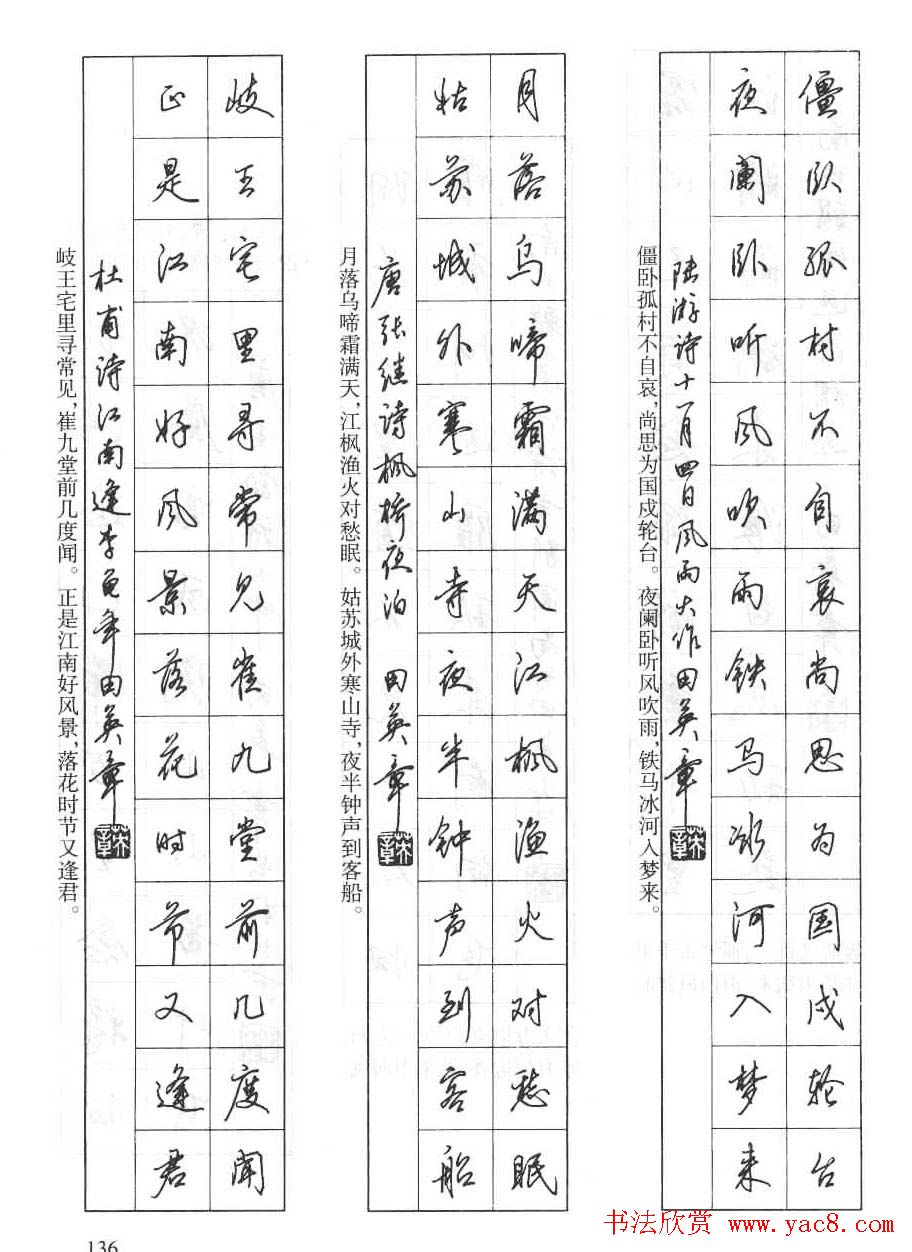 僵卧孤村不自哀尚思为国戍轮台
夜阑卧听风吹雨铁马冰河入梦来
陆游诗十一月四日风雨大作田英章
英章
僵卧孤村不自哀，尚思为国戍轮台。夜阑卧听风吹雨，铁马冰河入梦来。
月落乌啼霜满天江枫渔火对愁眠
姑苏城外寒山寺夜半钟声到客船
唐张继诗枫桥夜泊 田英章
英章
月落乌啼霜满天，江枫渔火对愁眠。姑苏城外寒山寺，夜半钟声到客船。
岐王宅里寻常见崔九堂前几度闻
正是江南好风景落花时节又逢君
杜甫诗江南逢李龟年田英章
英章
岐王宅里寻常见，崔九堂前几度闻。正是江南好风景，落花时节又逢君。
136
书法欣赏 www.yac8.com